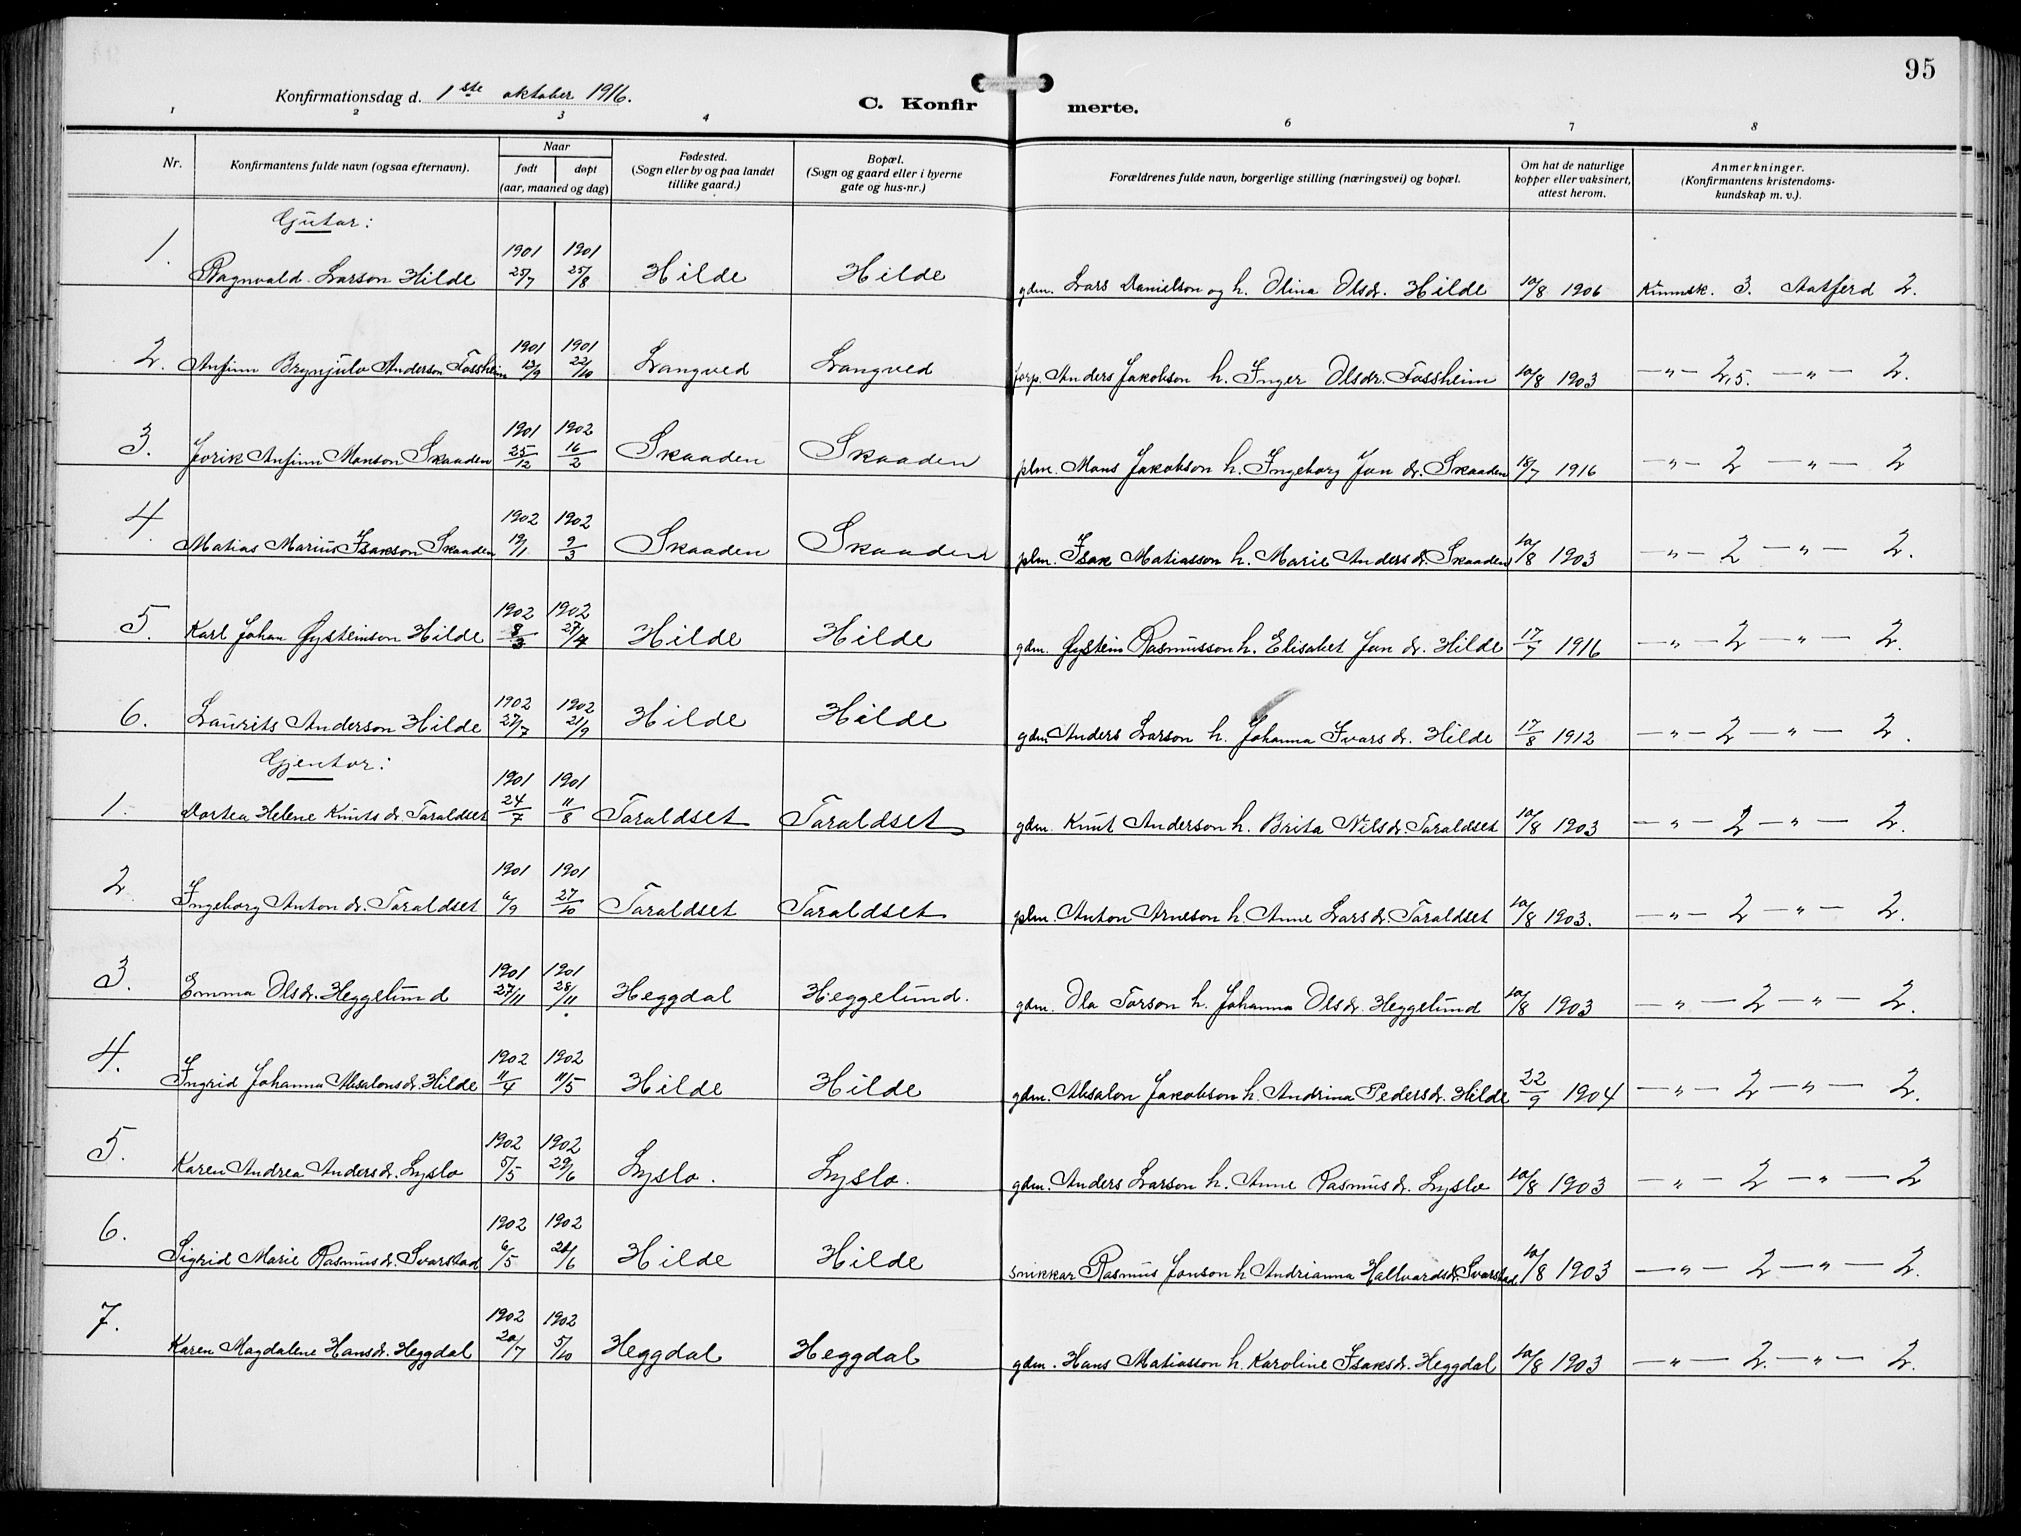 95
Konfirmationsdag d. 1ste oktober 1916.
C. Konfirmerte.
1 2 3 4 6 7 8
Nr. | Konfirmantens fulde navn (ogsaa efternavn). | Naar født | døpt (aar, maaned og dag) | Fødested. (Sogn eller by og paa landet tillike gaard.) | Bopæl. (Sogn og gaard eller i byerne gate og hus-nr.) | Forældrenes fulde navn, borgerlige stilling (næringsvei) og bopæl. | Om hat de naturlige kopper eller vaksinert, attest herom. | Anmerkninger. (Konfirmantens kristendoms-kundskap m. v.).
Gjutar:
1. Ragnvald Larson Hilde | 1901 25/7 | 1901 25/8 | Hilde | Hilde | gdm. Lars Danielson og h. Olina Olsdr. Hilde | 10/8 1906 | Kunnsk. 3. Aatferd 2.
2. Anfinn Brynjulv Anderson Fossheim | 1901 13/9 | 1901 22/10 | Langved | Langved | forp. Anders Jakobson h. Inger Olsdr. Fossheim | 10/8 1903 | —„— 2,5. —„— 2.
3. Jorik Anfinn Monson Skaaden | 1901 25/12 | 1902 16/2 | Skaaden | Skaaden | plm. Mons Jakobson h. Ingeborg Jon dr. Skaaden | 18/7 1916 | —„— 2 —„— 2
4. Matias Marius Isakson Skaaden | 1902 19/1 | 1902 9/3 | Skaaden | Skaaden | plm. Isak Matiasson h. Marie Andersdr. Skaaden | 10/8 1903 | —„— 2 —„— 2.
5. Karl Johan Øysteinson Hilde | 1902 8/3 | 1902 27/4 | Hilde | Hilde | gdm. Øystein Rasmusson h. Elisabet Jon dr. Hilde | 17/7 1916 | —„— 2 —„— 2.
6. Laurits Anderson Hilde | 1902 27/7 | 1902 21/9 | Hilde | Hilde | gdm Anders Larson h. Johanna Ivarsdr. Hilde | 17/8 1912 | —„— 2 —„— 2.
Gjentor:
1. Dortea Helene Knutsdr. Taraldset | 1901 24/7 | 1901 11/8 | Taraldset | Taraldset | gdm. Knut Anderson h. Brita Nilsdr. Taraldset | 10/8 1903 | —„— 2 —„— 2.
2. Ingeborg Anton dr. Taraldset | 1901 6/9 | 1901 27/10 | Taraldset | Taraldset | plm. Anton Arneson h. Anne Larsdr. Taraldset | 10/8 1903. | —„— 2 —„— 2.
3. Emma Olsdr. Heggelund | 1901 27/11 | 1901 28/11 | Heggdal | Heggelund. | gdm. Ola Torson h. Johanna Olsdr. Heggelund | 10/8 1903 | —„— 2 —„— 2.
4. Ingrid Johanna Absalonsdr. Hilde | 1902 11/4 | 1902 11/5 | Hilde | Hilde | gdm. Absalon Jakobson h. Andrina Pedersdr. Hilde | 22/9 1904 | —„— 2 —„— 2.
5. Karen Andrea Andersdr. Lyslo | 1902 5/5 | 1902 29/6 | Lyslo. | Lyslo. | gdm. Anders Larson h. Anne Rasmusdr. Lyslo | 10/8 1903 | —„— 2 —„— 2
6. Sigrid Marie Rasmusdr. Svarstad | 1902 6/5 | 1902 /6 | Hilde | Hilde | snikkar Rasmus Jonson h Andrianna Hallvardsdr. Svarstad | 10/8 1903 | —„— 2 —„— 2.
7. Karen Magdalene Hansdr. Heggdal | 1902 20/7 | 1902 5/10 | Heggdal | Heggdal | gdm. Hans Matiasson h. Karoline Isaksdr. Heggdal | 10/8 1903 | —„— 2. —„— 2.